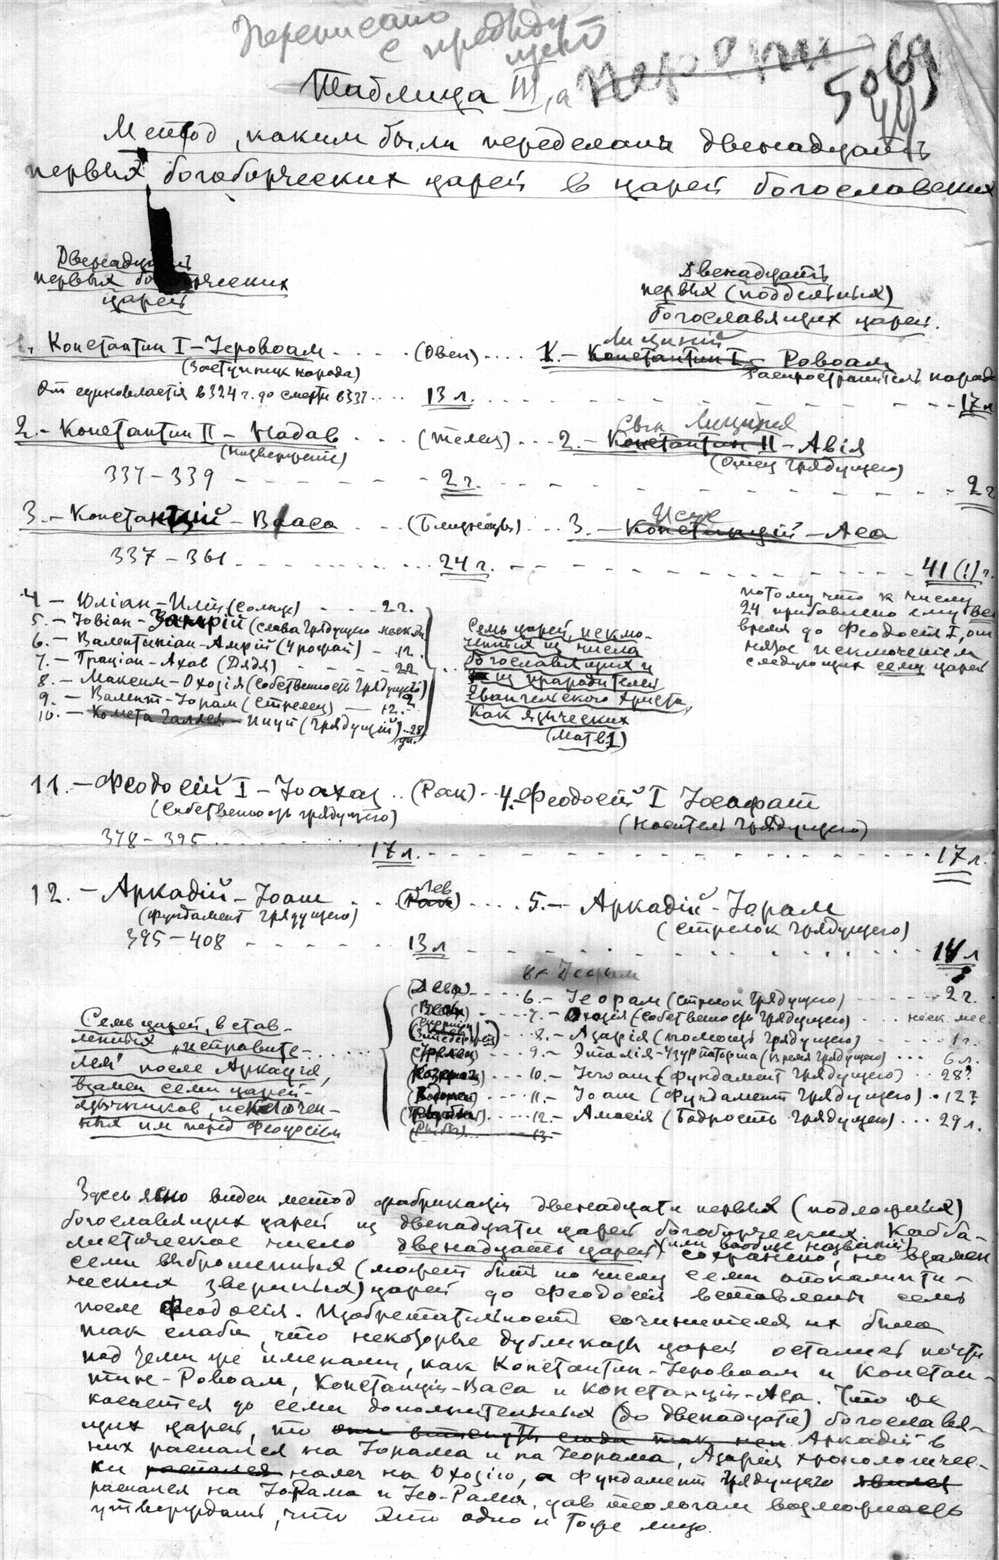 Переписано
с предыду
щей
Таблица III, а
5069
Метод, каким были переделаны двенадцать
первых богоборческих царей в царей богославских
Двенадцать
первых богоборческих
царей
Двенадцать
первых (поддельных)
богославящих царей.
1. Константин I-Іеровоам (Овен) 1.- Константин I- Ровоам
Лициній
(Заступник народа)
Распространитель народа
От единовластія в 324 г. до смерти в 337 13 л. 17 л.
2.- Константин II - Надав (Телец) 2.- Константин II - Авія
Сын Лициния
(Отец Грядущего)
337-339 2 г. 2 г
3.- Констанцій - Вааса (Близнецы) 3.- Констанцій - Аса
337-361 24 г. 41 (!) г.
потому что к числу
24 прибавлено ему все
время до Феодосія I,
исключением
следующих семи царей
4 - Юліан-Илий (Солнце) 2 г.
5.- Іовіан-Замрій (слава Грядущего
6.- Валентиніан-Амрій (
12.
7.- Граціан-Ахав (Дядя) 22
8.- Максим-Охозія (Собственность Грядущего)
9.- Валент-Іорам (Стрелец) - 12.
10.- Комета Галлея Ииуй (Грядущий) 28
Семь царей, исклю-
ченных из числа
Богославящих и
из прародителей
Евангельского Христа,
как языческих
(Матв. 1)
11.- Феодосій I - Іоахаз (Рак) 4.- Феодосій I Іосафат
(Собственность грядущего)
(Носител грядущего)
378-395 17 л. 17 л.
12. - Аркадій - Іоаш (Рак) 5.- Аркадій - Іорам
Лев
(Фундамент грядущего)
(Стрелок Грядущего)
395-408 13 л
Семь царей, встав-
ленных „исправите-
лем" после Аркадія,
взамен семи царей-
язычников, исключен-
ных им перед Феодосіем
(Дева) 6.- Іеорам (Стрелок Грядущего) 2 г.
(Весы) 7.- Охозія (Собственность Грядущего) неск. мес.
8.- Азарія (Помощь Грядущего) 1 г.
(Стрелец) 9.- Эталія-Узурпаторша (Время Грядущего) 6 л.
(Козерог) 10.- Іегоаш (Фундамент Грядущего) 28?
(Водолей) 11.- Іоаш (Фундамент Грядущего) 12?
12.- Амасія (Бодрость Грядущего) 29 л.
(Рыбы) 13
Здесь ясно виден метод фабрикаціи двенадцати первых (подложных)
богославящих царей из двенадцати царей богоборческих. Кабба-
листическое число двенадцать царей (или вообще названій) сохранено, но взамен
семи выброшенных (может быть по числу семи апокалипти-
ческих звериных) царей до Феодосія вставлены семь
после Феодосія. Изобретательность сочинителя их была
так слаба, что некоторые дубликаты царей остались почти
под теми же именами, как Константин-Іеровоам и Констан-
тин-Ровоам, Констанцій-Васа и Констанцій-Аса. Что же
касается до семи дополнительных (до двенадцати) богославя-
щих царей, то Аркадій в
них распался на Іорама и на Іеорама, Азарія хронологичес-
ки распался налег на Охозію, а Фундамент Грядущего явился
распался на Іорама и Іео-Рама, дав теологам возможность
утверждать, что это одно и тоже лицо.